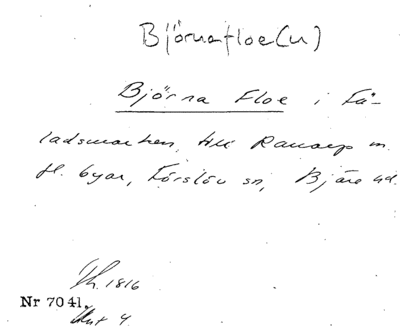 Björnafloe(n)
Björna Floe i Fä-
ladsmarken, till Ranarp m.
fl. byar, Förslöv sn, Bjäre hd.
Lh. 1816
Nr 7041.
Akt 4